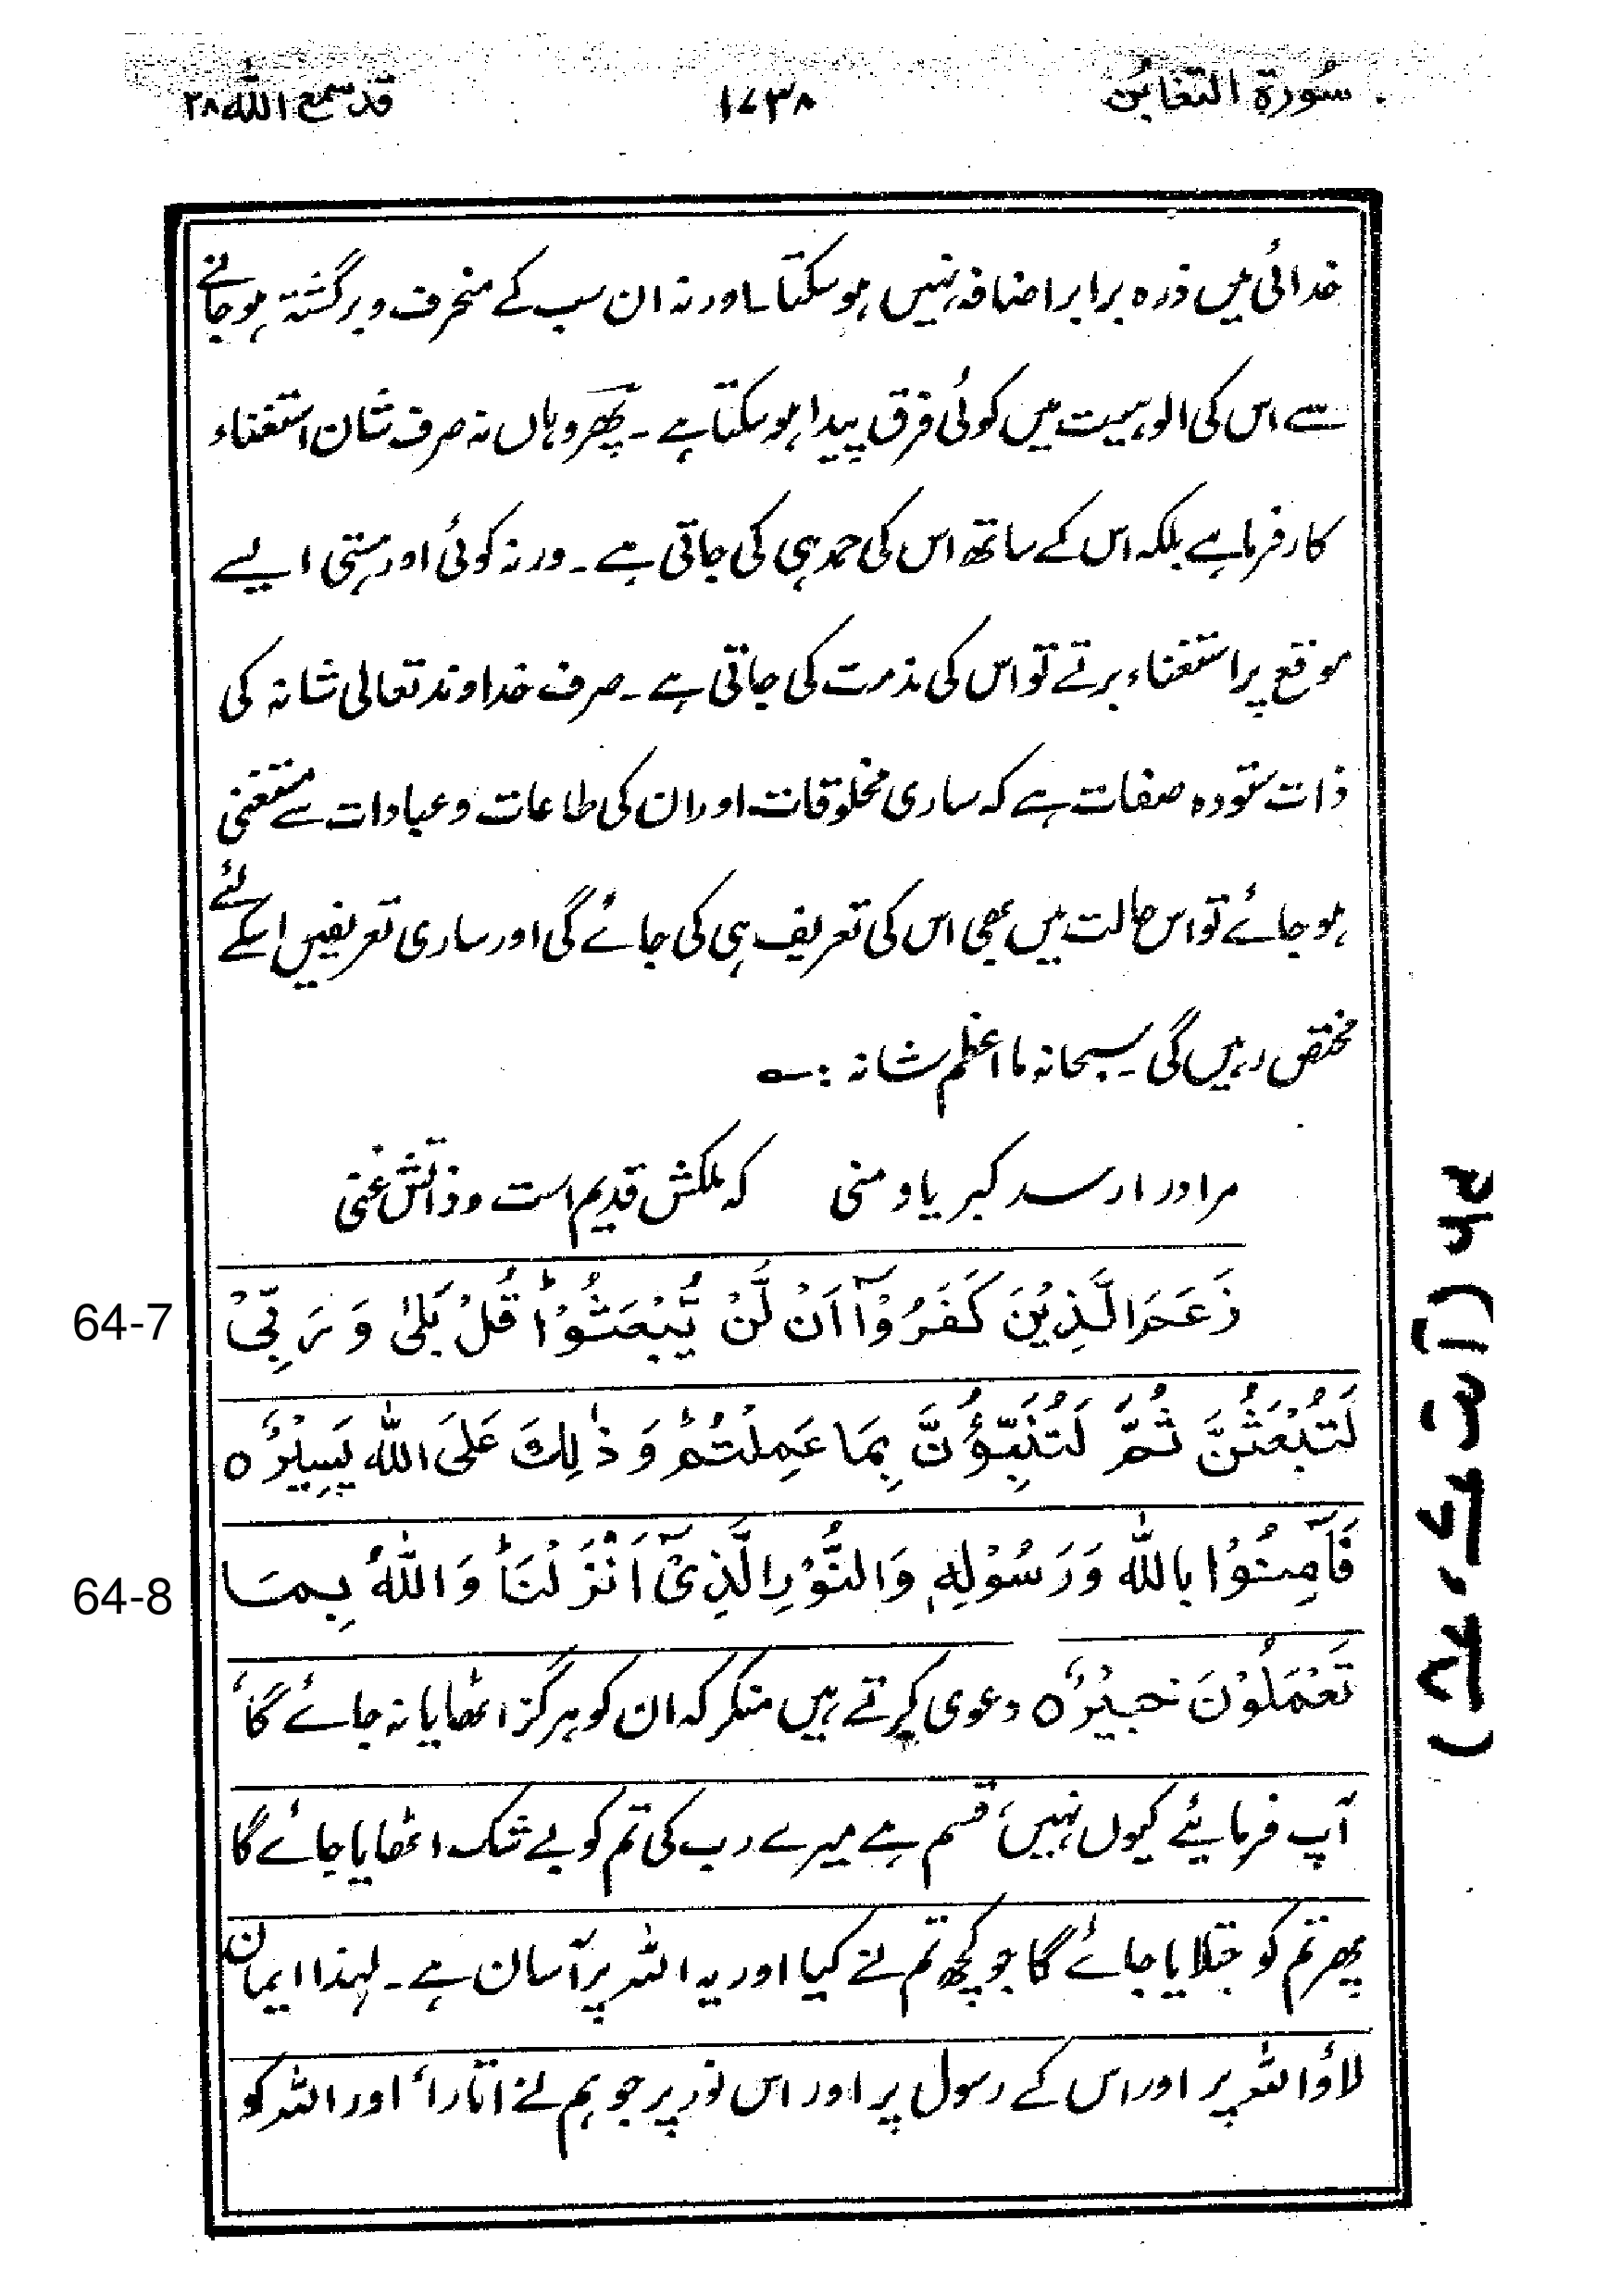 سُورۃ التغابُن
١٧٣٨
قد سمع اللہ ٢٨
خدائی میں ذرہ برابر اضافہ نہیں ہو سکتا اور نہ ان سب کے منحرف و برگشتہ ہو جانے
سے اس کی الوہیت میں کوئی فرق پیدا ہو سکتا ہے ۔ پھر وہاں نہ صرف شان استغناء
کار فرما ہے بلکہ اس کے ساتھ اس کی حمد ہی کی جاتی ہے ۔ ورنہ کوئی اور ہستی ایسے
موقع پر استغناء برتے تو اس کی مذمت کی جاتی ہے ۔ صرف خداوند تعالی شانہ کی
ذات ستودہ صفات ہے کہ ساری مخلوقات اور ان کی طاعات و عبادات سے مستغنی
ہو جائے تو اس حالت میں بھی اس کی تعریف ہی کی جائے گی اور ساری تعریفیں اسکے لئے
مختص رہیں گی ۔ سبحانہ ما اعظم شانہ : ؎
مر او را رسد کبریا و منی کہ ملکش قدیم است و ذاتش غنی
64-7 زَعَمَ الَّذِیْنَ کَفَرُوْۤا اَنْ لَّنْ یُّبْعَثُوْاؕ قُلْ بَلٰی وَ رَبِّیْ
لَتُبْعَثُنَّ ثُمَّ لَتُنَبَّؤُنَّ بِمَا عَمِلْتُمْؕ وَ ذٰلِكَ عَلَی اللّٰہِ یَسِیْرٌ ہ
64-8 فَاٰمِنُوْا بِاللّٰہِ وَ رَسُوْلِہٖ وَ النُّوْرِ الَّذِیْۤ اَنْزَلْنَاؕ وَ اللّٰہُ بِمَا
تَعْمَلُوْنَ خَبِیْرٌ ہ دعوی کرتے ہیں منکر کہ ان کو ہرگز اٹھایا نہ جائے گا،
آپ فرمایئے کیوں نہیں، قسم ہے میرے رب کی تم کو بے شک اٹھایا جائے گا
پھر تم کو جتلایا جائے گا جو کچھ تم نے کیا اور یہ اللہ پر آسان ہے ۔ لہذا ایمان
لاؤ اللہ پر اور اس کے رسول پر اور اس نور پر جو ہم نے اتارا، اور اللہ کو